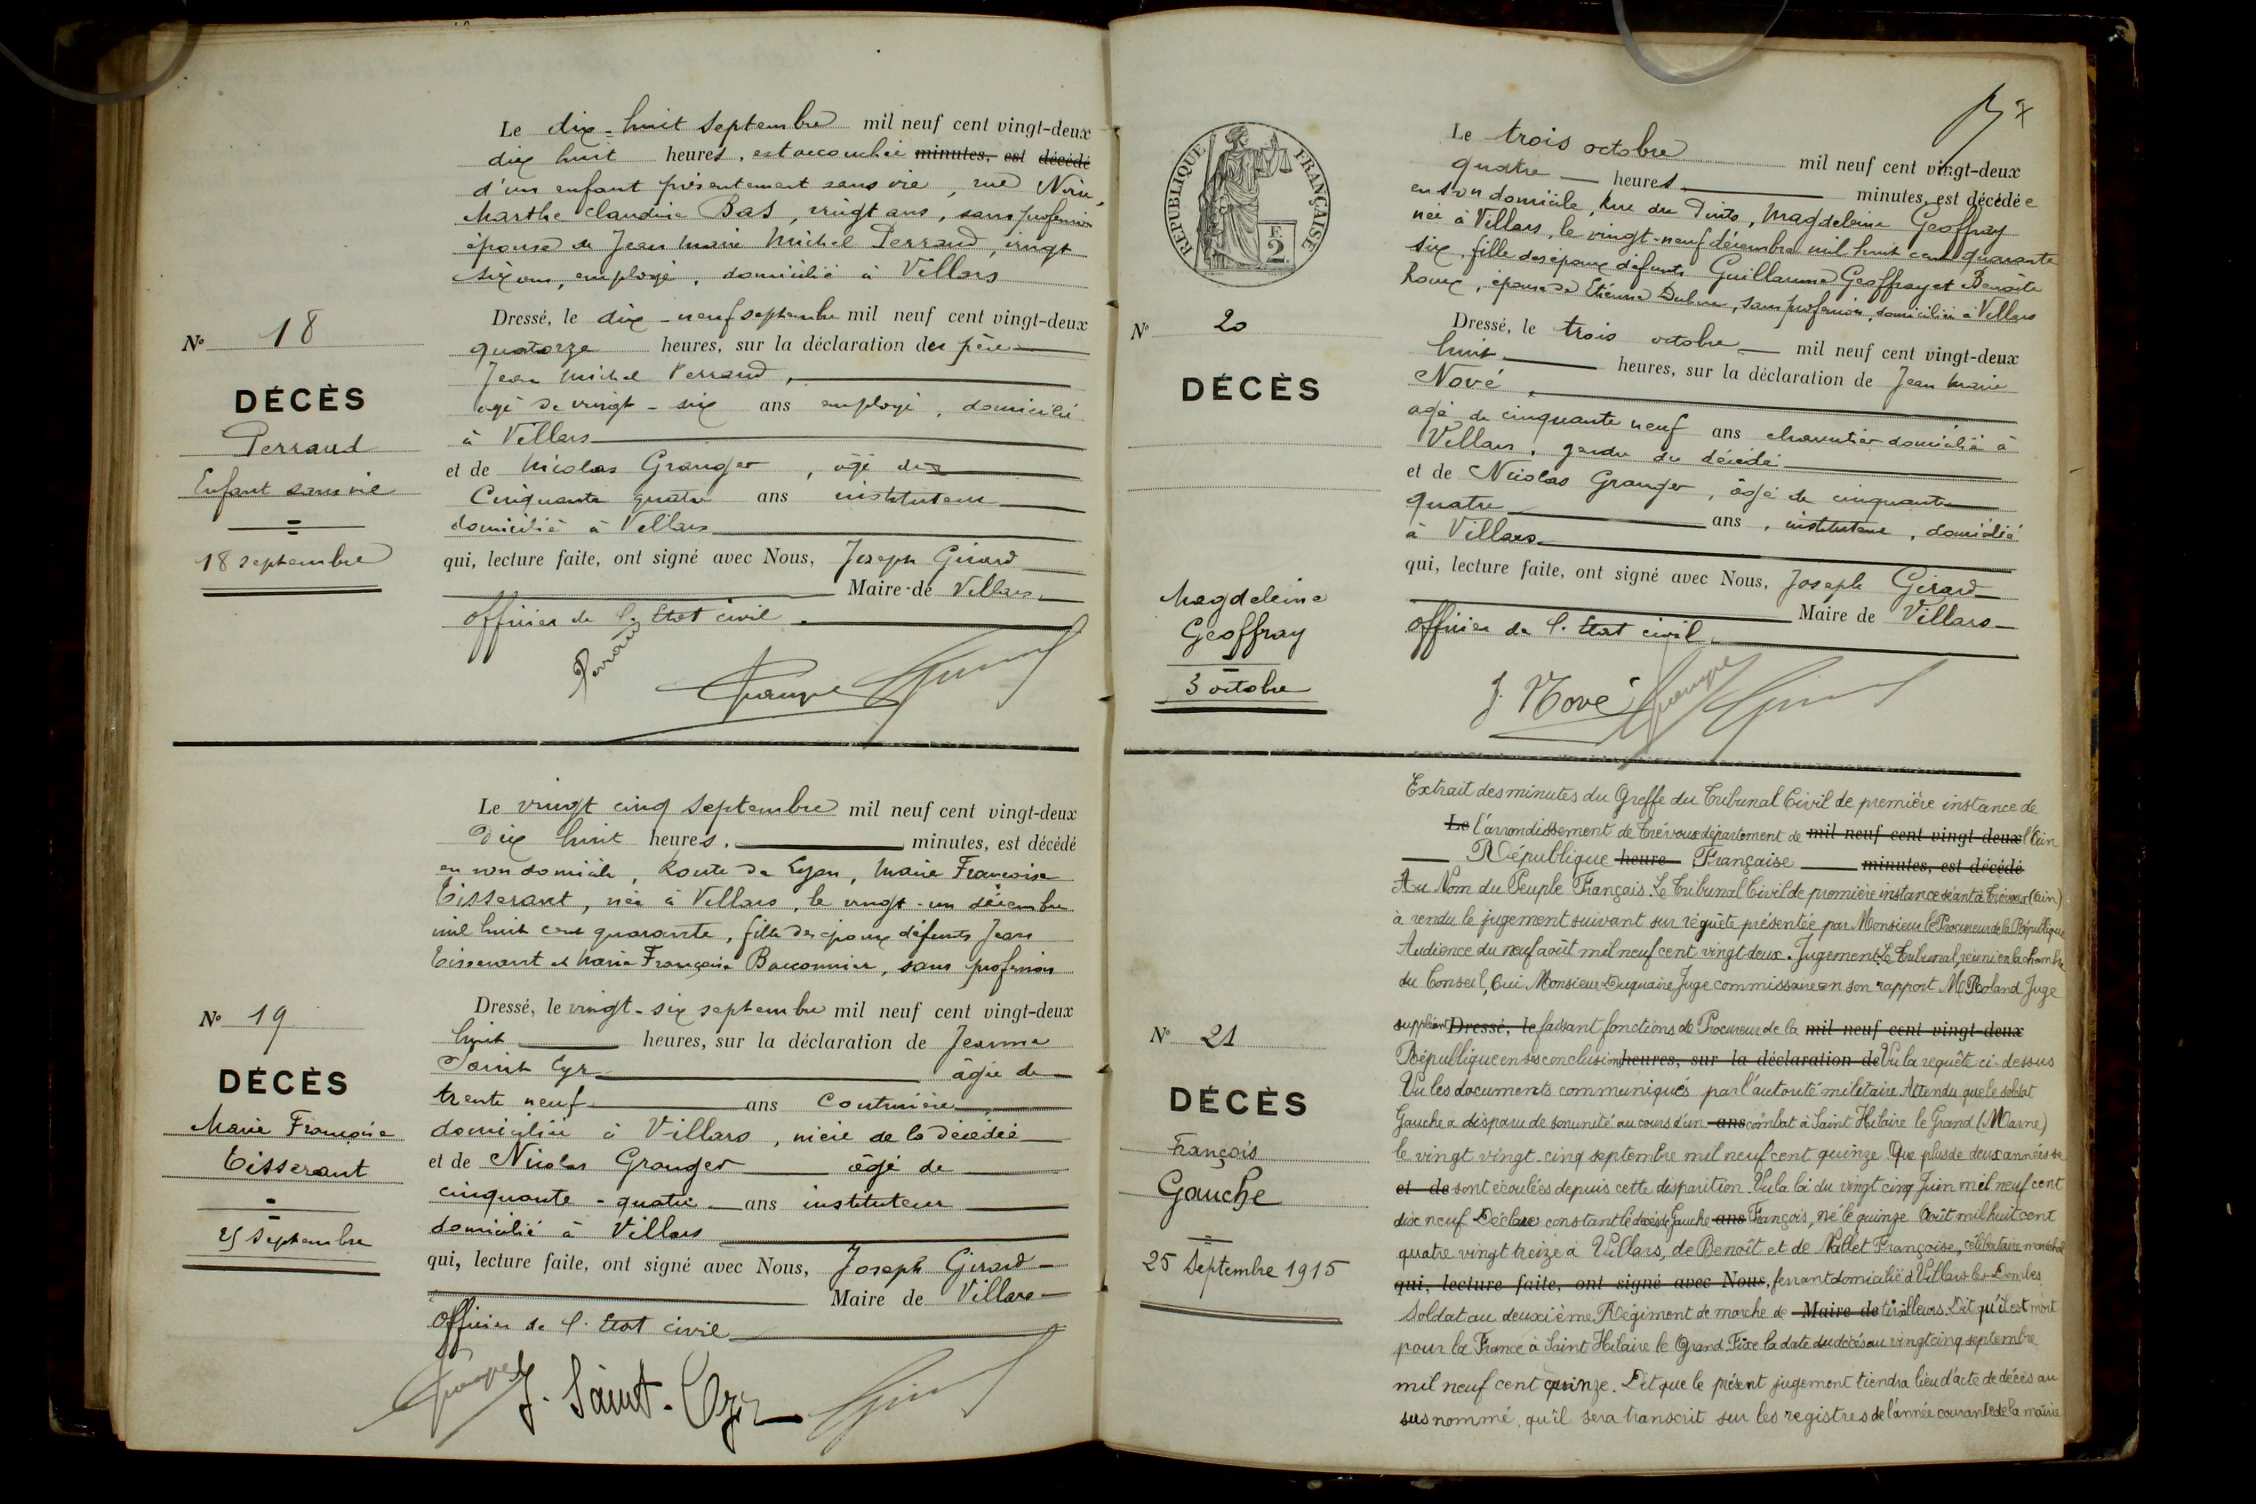 Le dix-huit septembre mil neuf cent vingt-deux
dix huit heures, est accouchée minutes, est décédé
d'un enfant présentement sans vie, rue Noire,
Marthe Claudine Bas, vingt ans, sans profession
épouse de Jean Marie Michel Perraud, vingt
six ans, employé, domicilié à Villars
Dressé, le dix-neuf septembre mil neuf cent vingt-deux
quatorze heures, sur la déclaration de père
Jean Michel Perraud,
âgé de vingt-six ans employé, domicilié
à Villars
et de Nicolas Granger, âgé de
Cinquante quatre ans instituteur
domicilié à Villars
qui, lecture faite, ont signé avec Nous, Joseph Girard
Maire de Villars,
officier de l'Etat civil.
Perraud
Granger
Nº 18
DÉCÈS
Perraud
Enfant sans vie
18 septembre
Le vingt cinq septembre mil neuf cent vingt-deux
Dix huit heures, minutes, est décédé
en son domicile, Route de Lyon, Marie Françoise
Tisserant, née à Villars, le vingt-un décembre
mil huit cent quarante, fille des époux défunts Jean
Tisserant et Marie Françoise Bouconnier, sans profession
Dressé, le vingt-six septembre mil neuf cent vingt-deux
huit heures, sur la déclaration de Jeanne
Saint Cyr âgée de
trente neuf ans Couturière
domiciliée à Villars, nièce de la décédée
et de Nicolas Granger âgé de
cinquante-quatre ans instituteur
domicilié à Villars
qui, lecture faite, ont signé avec Nous, Joseph Girard
Maire de Villars
officier de l'Etat civil
Granger J. Saint-Cyr
Nº 19
DÉCÈS
Marie Françoise
Tisserant
25 septembre
Le trois octobre mil neuf cent vingt-deux
quatre heures minutes, est décédée
en son domicile, Rue du Puits, Magdeleine Geoffray
née à Villars, le vingt-neuf décembre mil huit cent quarante
six, fille des époux défunts Guillaume Geoffray et Benoîte
Roux, épouse de Etienne, sans profession, domiciliée à Villars
Dressé, le trois octobre mil neuf cent vingt-deux
huit heures, sur la déclaration de Jean Marie
Nové,
âgé de cinquante neuf ans charcutier domicilié à
Villars, gendre du décédé
et de Nicolas Granger, âgé de cinquante
quatre ans, instituteur, domicilié
à Villars
qui, lecture faite, ont signé avec Nous, Joseph Girard
Maire de Villars
officier de l'Etat civil
J. Nové Granger
RÉPUBLIQUE FRANÇAISE
F.
2
Nº 20
DÉCÈS
Magdeleine
Geoffray
3 octobre
Extrait des minutes du Greffe du Tribunal Civil de première instance de
Le l'arrondissement de Trévoux département de mil neuf cent vingt-deux l'Ain
République heure Française minutes, est décédé
Au Nom du Peuple Français. Le Tribunal Civil de première instance séant à Trévoux (Ain)
à rendu le jugement suivant sur réquête présentée par Monsieur le Procureur de la République
Audience du neuf août mil neuf cent vingt deux. Jugement. Le Tribunal, réuni en la chambre
du Conseil, Oui Monsieur Duquaire Juge commissaire en son rapport M Roland Juge
suppléant Dressé, le faisant fonctions de Procureur de la mil neuf cent vingt-deux
République en ses conclusions heures, sur la déclaration de Vu la requête ci-dessus
Vu les documents communiqués par l'autorité militaire. Attendu que le soldat
Gauche a disparu de son unité au cours d'un ans combat à Saint Hilaire le Grand (Marne)
le vingt vingt-cinq septembre mil neuf cent quinze. Que plus de deux années se
et de sont écoulées depuis cette disparition. Vu la loi du vingt cinq Juin mil neuf cent
dix neuf Déclare constant le décès de Gauche ans François, né le quinze Août mil huit cent
quatre vingt treize à Villars, de Benoît et de Nallet Françoise, célibataire maréchal
qui, lecture faite, ont signé avec Nous, ferrant domicilié à Villars les Dombes
soldat au deuxième Régiment de marche de Maire de tirailleurs. Dit qu'il est mort
pour la France à Saint Hilaire le Grand. Fixe la date du décès au vingt cinq septembre
mil neuf cent quinze. Dit que le présent jugement tiendra lieu d'acte de décès au
sus nommé, qu'il sera transcrit sur les registres de l'année courante de la mairie
Nº 21
DÉCÈS
François
Gauche
25 Septembre 1915